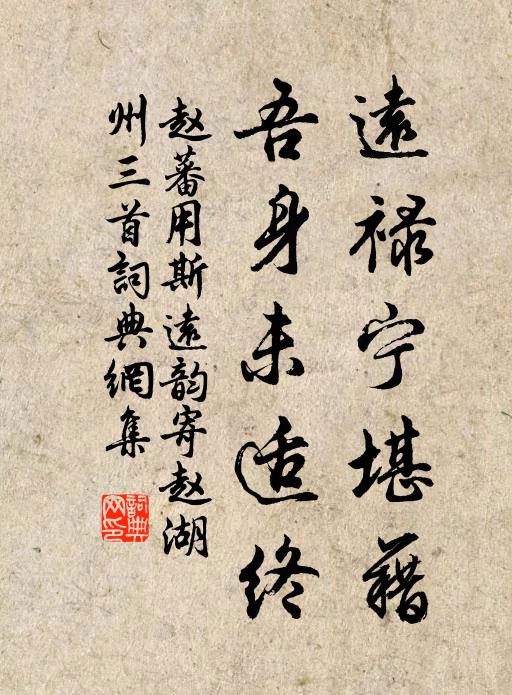 遠禄宁堪藉
吾身未适终
赵蕃用斯遠韵寄赵湖
州三首詞典網集
詞典网印